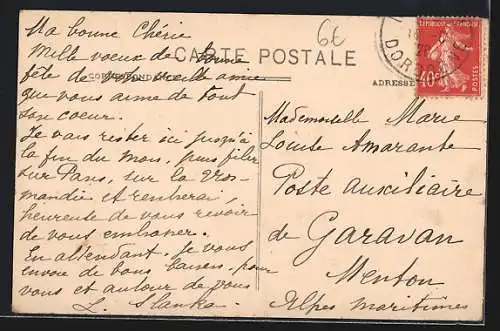 Ma bonne Chérie
Mille voeux de bonne
fête de votre vieille amie
que vous aime de tout
son coeur.
Je vais rester ici jusqu'à
la fin du mois, puis filer
sur Paris, sur la
mandie et rentrerai,
heureuse de vous revoir
de vous embrasser.
En attendant, je vous
envoie de bons baisers, pour
vous et autour de vous
L.
6€
CARTE POSTALE
CORRESPONDANCE
ADRESSE
DORDOGNE
40c
POSTES
Mademoiselle Marie
Louise Amarante
Poste auxiliaire
de Garavan
Menton
Alpes maritimes